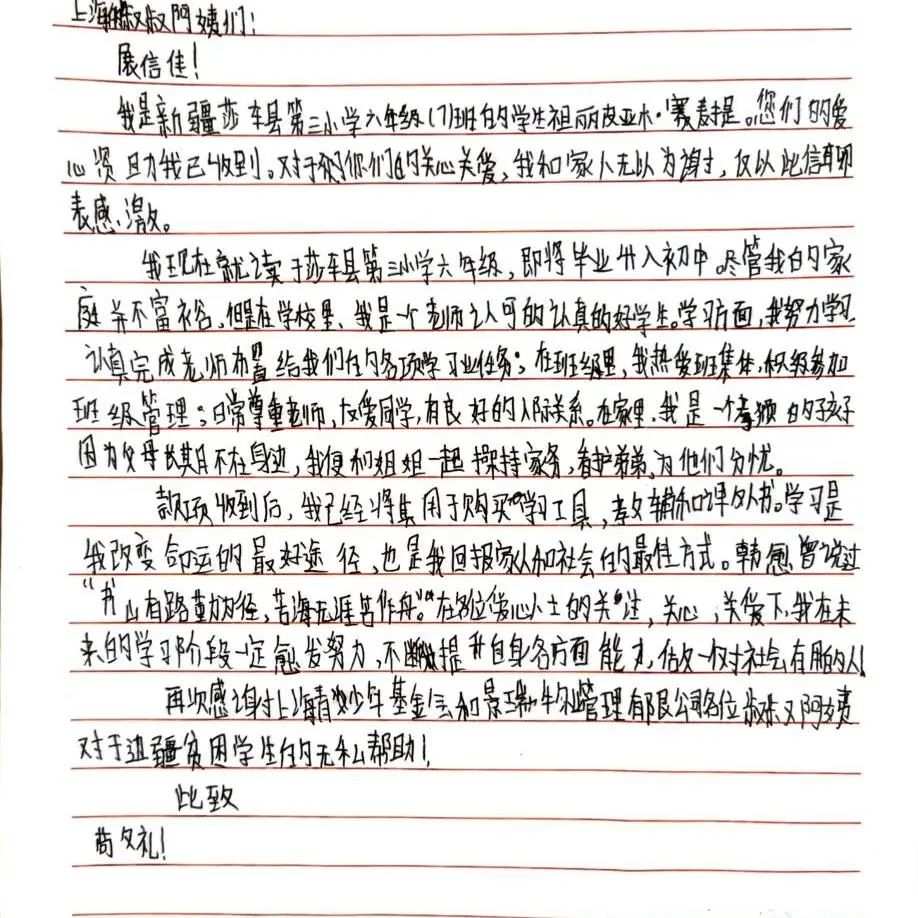 上海的叔叔阿姨们：
展信佳！
我是新疆莎车县第三小学六年级（7）班的学生祖丽皮亚木·赛麦提。您们的爱
心资助我已收到。对于你们的关心关爱，我和家人无以为谢，仅以此信聊
表感激。
我现在就读于莎车县第三小学六年级，即将毕业升入初中。尽管我的家
庭并不富裕，但是在学校里、我是一个老师认可的认真的好学生。学习方面，我努力学习
认真完成老师布置给我们的各项学习业任务；在班级里，我热爱班集体，积极参加
班级管理；日常尊重老师，友爱同学，有良好的人际关系。在家里，我是一个孝顺的好孩子
因为父母长期不在身边，我便和姐姐一起操持家务，看护弟弟，为他们分忧。
款项收到后，我已经将其用于购买学习工具，教辅和课外书。学习是
我改变命运的最好途径，也是我回报家人和社会的最佳方式。韩愈曾说过
“书山有路勤为径，苦海无涯苦作舟。”在各位爱心人士的关注，关心，关爱下，我在未
来的学习阶段一定愈发努力，不断提升自身各方面能力，做一个对社会有用的人！
再次感谢上海青少年基金会和景瑞物业管理有限公司各位叔叔阿姨
对于边疆贫困学生的无私帮助！
此致
敬礼！